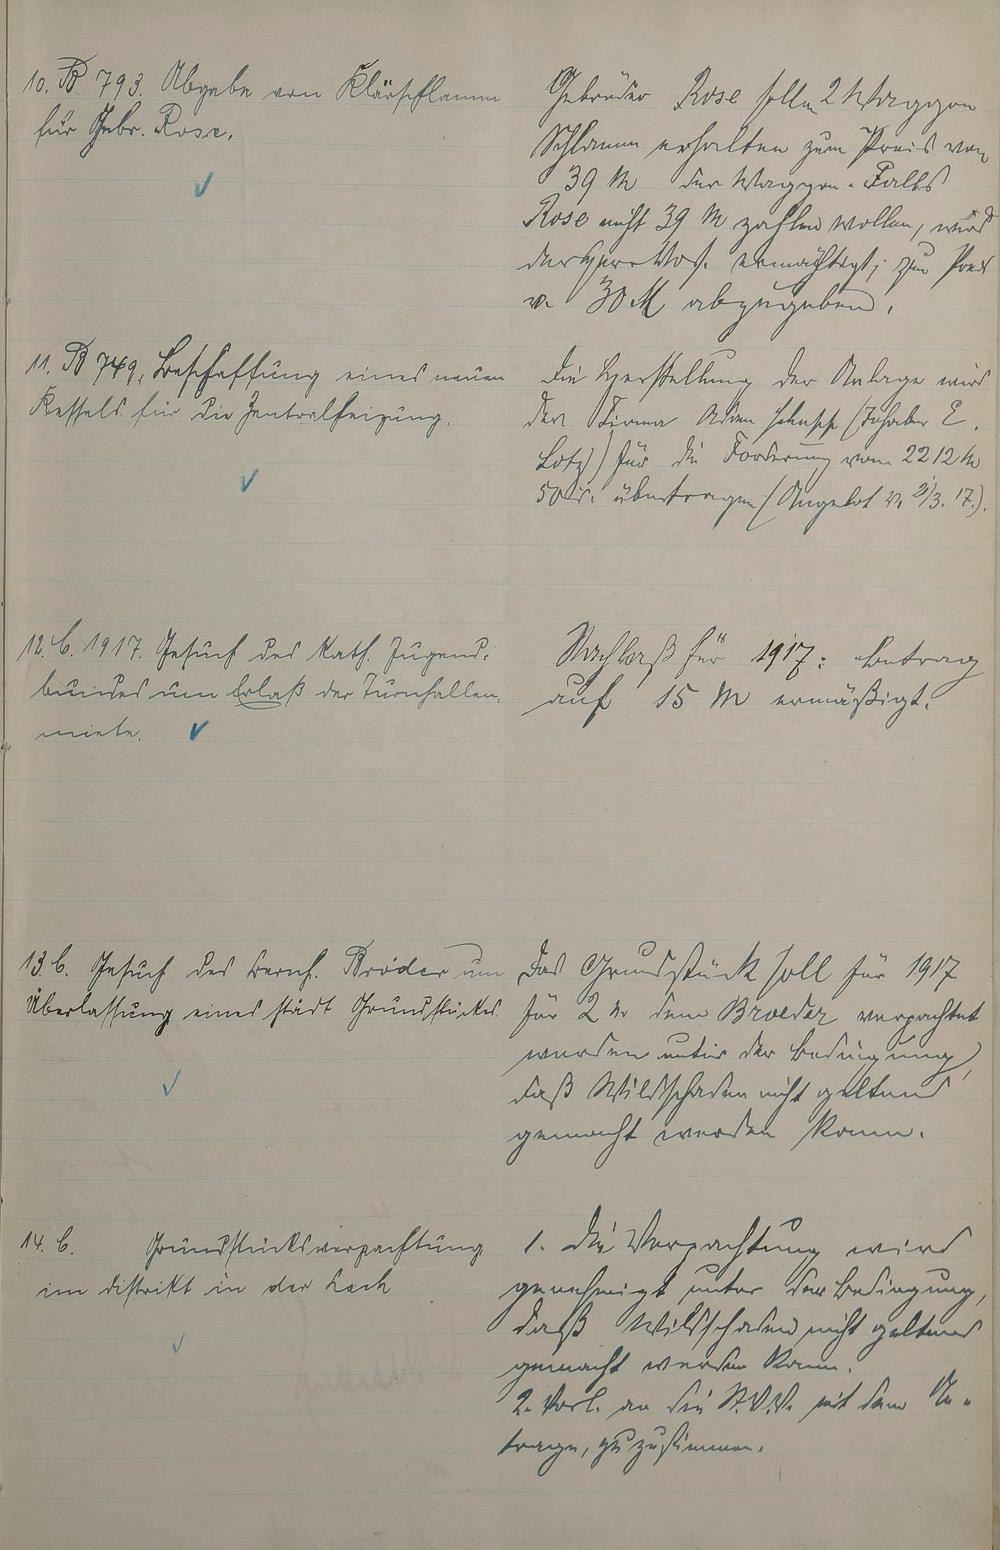 10. B. 793. Abgabe von Klärschlamm
für Gebr. Rose.
Gebrüder Rose sollen 2 Waggon
Schlamm erhalten zum Preis von
39 M der Waggon. Falls
Rose nicht 39 M zahlen wollen, wird
der ermächtigt, zum Preis
v. 30 M abzugeben.
11. B 749. Beschaffung eines neuen
Kessels für die Zentralheizung.
Die Herstellung der Anlage wird
der Firma (Inhaber E.
Lotz) für die Forderung von 2212 M
50 übertragen (Angebot v. 2/3. 17.).
12. C. 1917. Gesuch des kath. Jugend-
bundes um Erlaß der Turnhallen-
miete.
Nachlaß für 1917: Betrag
auf 15 M ermäßigt.
13. C. Gesuch des Bernh. Bröder um
Überlassung eines städt Grundstückes.
Das Grundstück soll für 1917
für 2 M dem Broeder verpachtet
werden unter der Bedingung,
daß Wildschaden nicht geltend
gemacht werden kann.
14. C. Grundstücksverpachtung
im Distrikt in der
1. Die Verpachtung wird
genehmigt unter der Bedingung,
daß Wildschaden nicht geltend
gemacht werden kann.
2. Vorl. an die St.V.V. mit dem An-
trage, zuzustimmen.